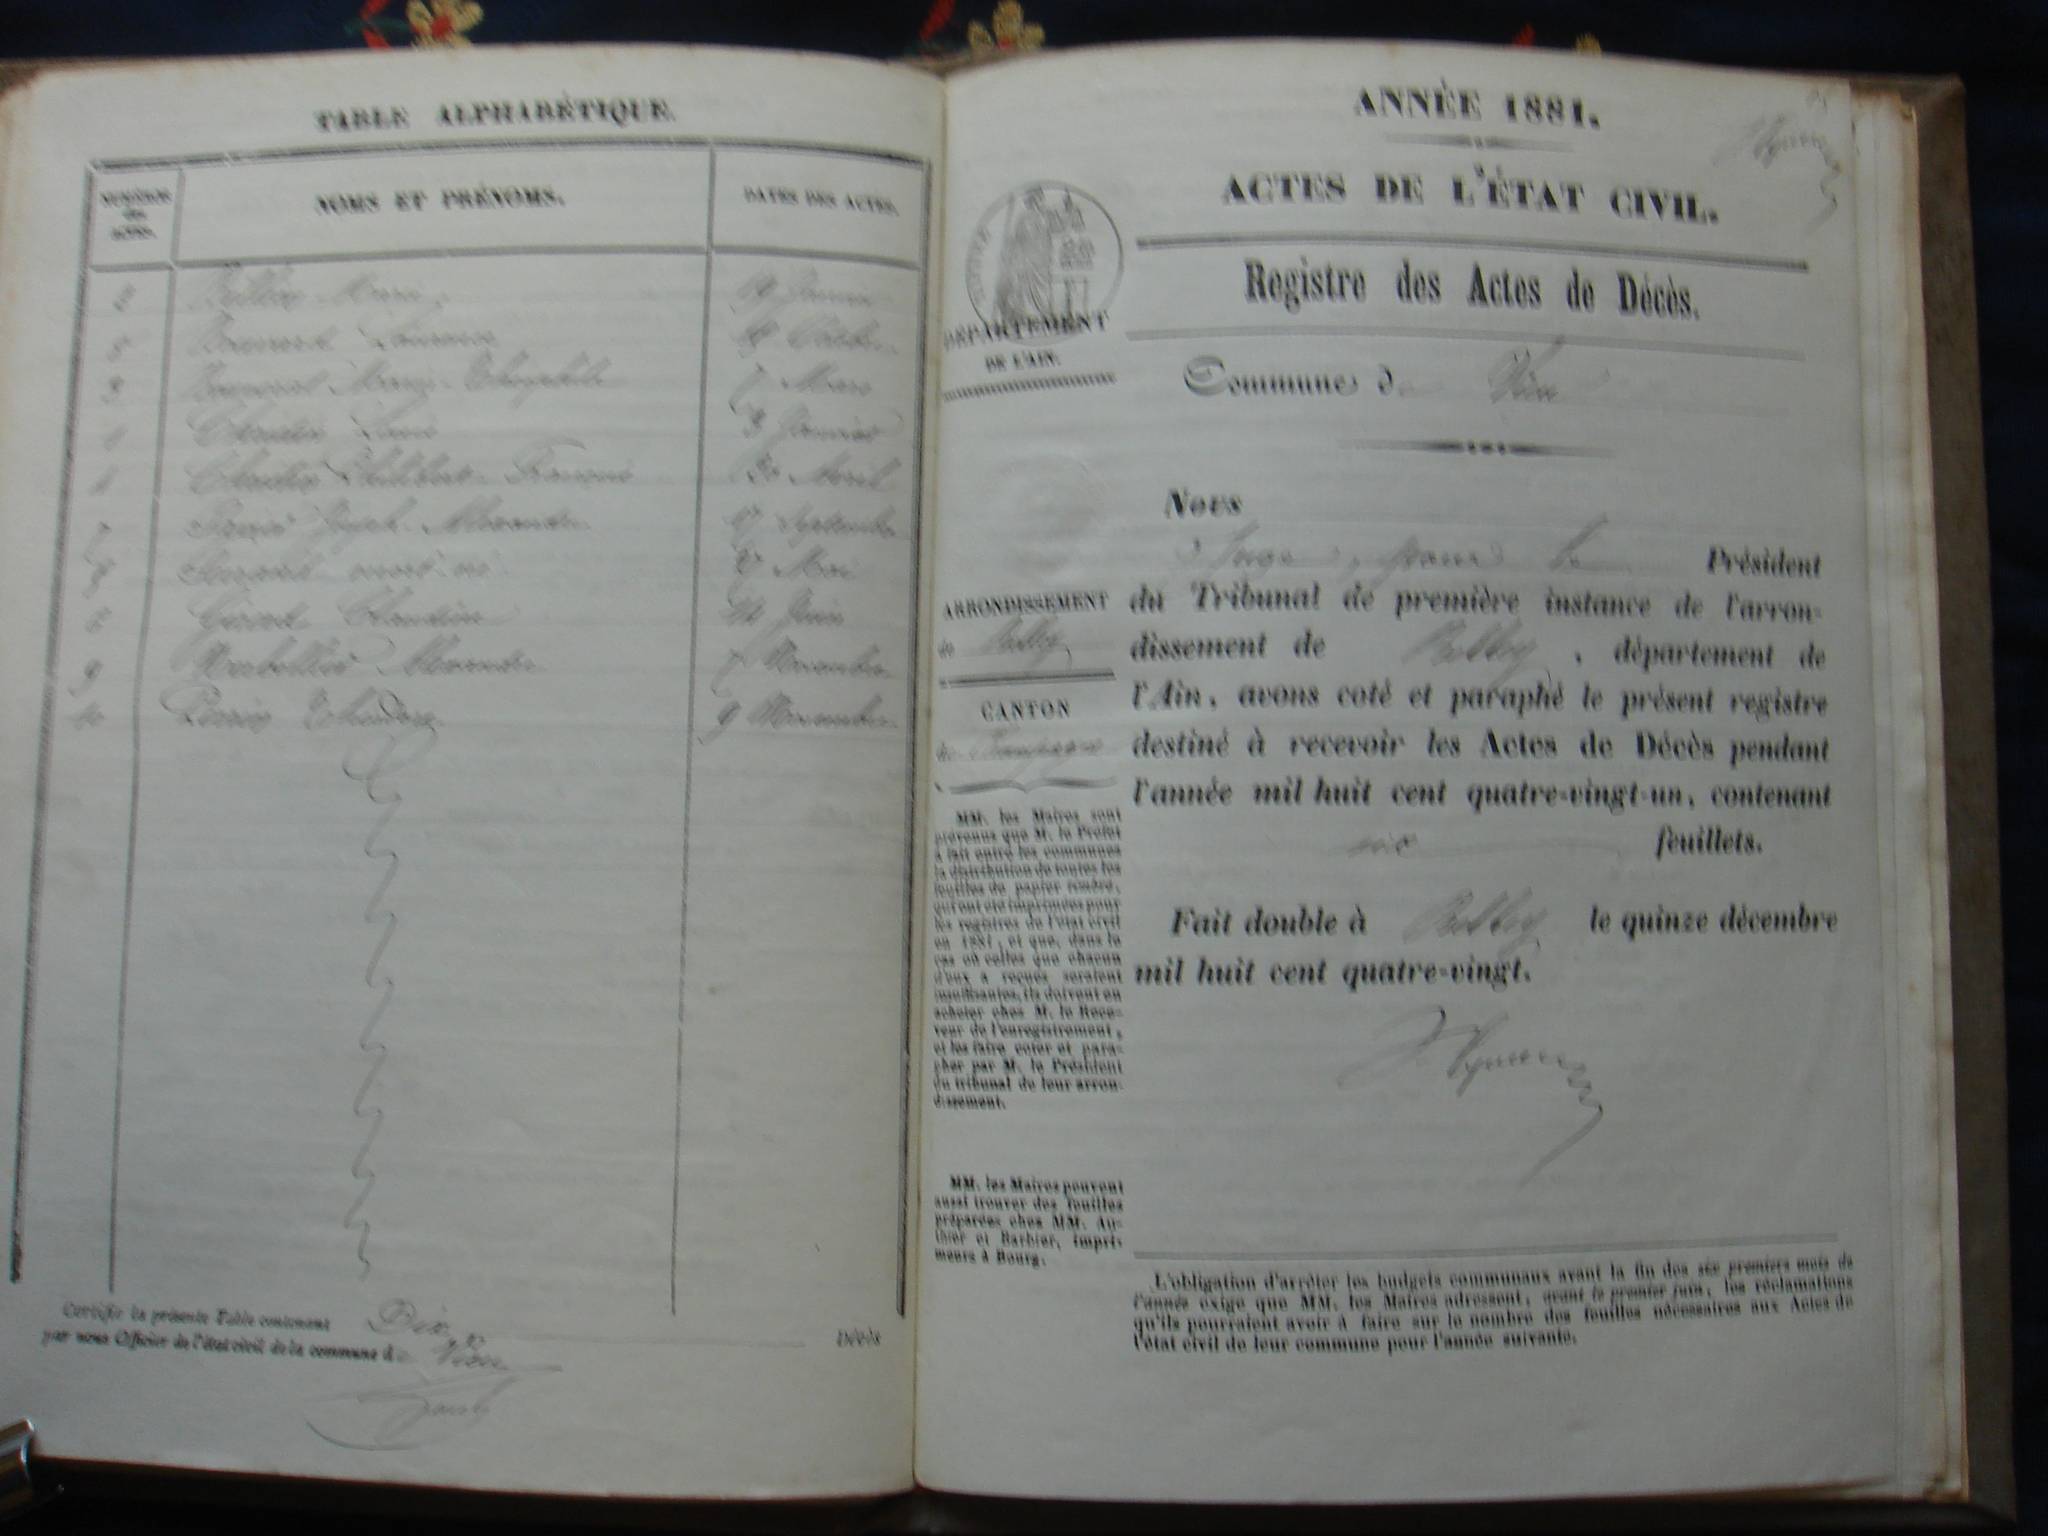 TABLE ALPHABÉTIQUE.
NUMÉROS
des
ACTES.
NOMS ET PRÉNOMS.
DATES DES ACTES.
2 Marie 19 Janvier
8 Octobre
3 Marie-Théophile 7 Mars
1 Louis 3 Janvier
4 Philibert-François 30 Avril
7 Joseph Alexandre 17 Septembre
mort-né 27 Mai
6 Claudine 14 Juin
9 Alexandre 7 Novembre
10 Perrin Théodore 9 Novembre
Certifié la présente Table contenant Dix Décès
par nous Officier de l'état civil de la commune de Vieu
ANNÉE 1881.
ACTES DE L'ÉTAT CIVIL.
Registre des Actes de Décès.
DÉPARTEMENT
DE L'AIN.
Commune de Vieu
Nous
Juge, pour le Président
du Tribunal de première instance de l'arron-
dissement de Belley, département de
l'Ain, avons coté et paraphé le présent registre
destiné à recevoir les Actes de Décès pendant
l'année mil huit cent quatre-vingt-un, contenant
six feuillets.
Fait double à Belley le quinze décembre
mil huit cent quatre-vingt.
ARRONDISSEMENT
de Belley
CANTON
de Champagne
MM. les Maires sont
prévenus que M. le Préfet
a fait entre les communes
la distribution de toutes les
feuilles de papier timbré,
qui ont été imprimées pour
les registres de l'état civil
en 1881, et que, dans le
cas où celles que chacun
d'eux a reçues seraient
insuffisantes, ils doivent en
acheter chez M. le Rece-
veur de l'enregistrement,
et les faire coter et para-
pher par M. le Président
du tribunal de leur arron-
dissement.
MM. les Maires peuvent
aussi trouver des feuilles
préparées chez MM. Au-
thier et Barbier, impri-
meurs à Bourg.
L'obligation d'arrêter les budgets communaux avant la fin des six premiers mois de
l'année exige que MM. les Maires adressent, avant le premier juin, les réclamations
qu'ils pourraient avoir à faire sur le nombre des feuilles nécessaires aux Actes de
l'état civil de leur commune pour l'année suivante.